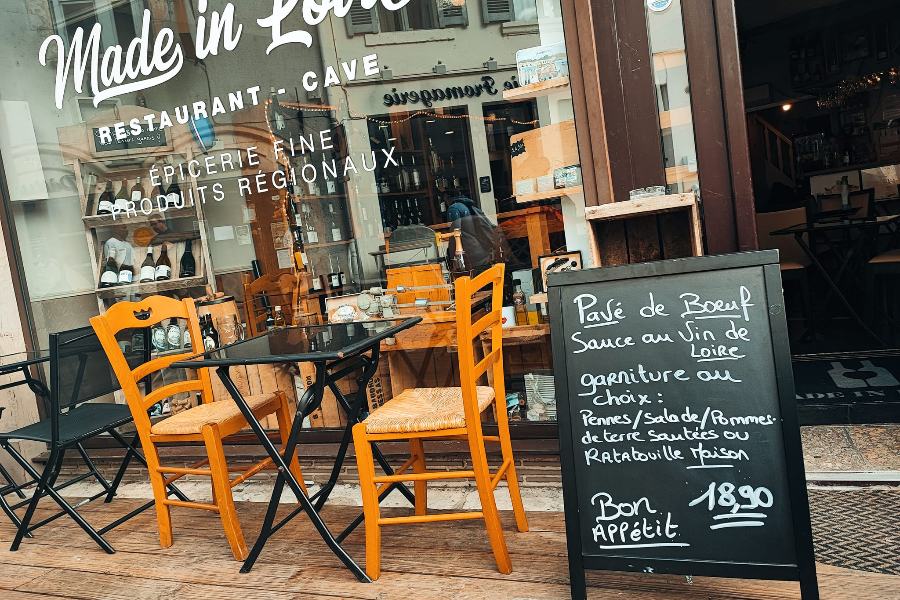 Made in Loire
RESTAURANT - CAVE
ÉPICERIE FINE
PRODUITS RÉGIONAUX
Fromagerie
Pavé de Boeuf
Sauce au Vin de
LOIRE
garniture au
choix :
Pennes/Salade/Pommes-
de terre sautées ou
RATATOUILLE Maison
Bon
APPÉtit.
18,90
MADE IN